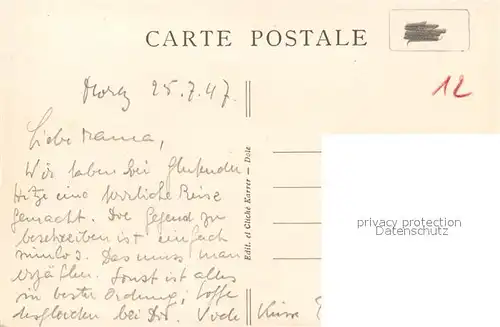 CARTE POSTALE
Morez 25.7.47.
12
Liebe Mama,
Wir haben bei glühender
Hitze eine herrliche Reise
gemacht. Die Gegend zu
beschreiben ist einfach
sinnlos. Das muss man
erzählen. Sonst ist alles
in bester Ordnung; hoffe
desgleichen bei Dir. Viele
Küsse
Edit. et Cliché Karrer — Dole
privacy protection
Datenschutz